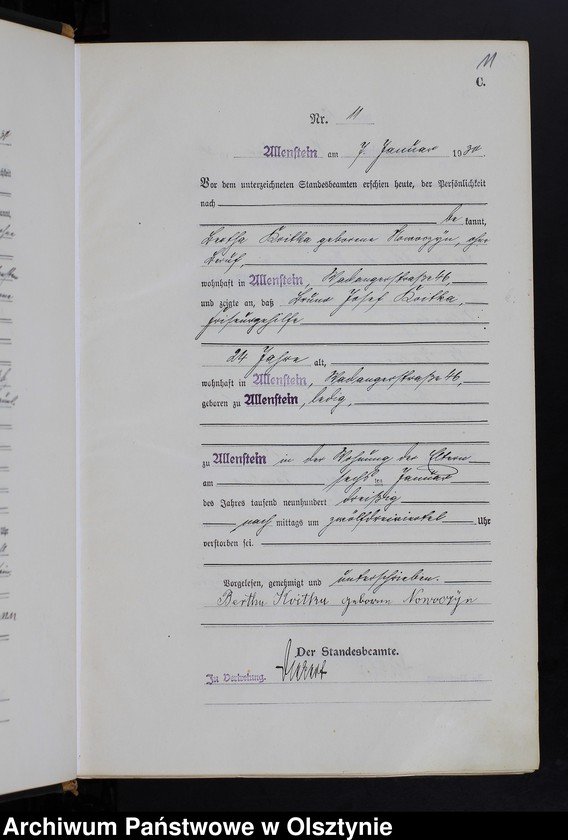 11
C.
Nr. 11
Allenstein am 7. Januar 1930.
Vor dem unterzeichneten Standesbeamten erschien heute, der Persönlichkeit
nach
be kannt,
Bertha Kvitka geborene Nowoczyn, ohne
Beruf,
wohnhaft in Allenstein, Wadangerstraße 46,
und zeigte an, daß Bruno Josef Kvitka,
Friseurgehilfe
24 Jahre alt,
wohnhaft in Allenstein, Wadangerstraße 46,
geboren zu Allenstein, ledig,
zu Allenstein in der Wohnung der Eltern
am sechsten Januar
des Jahres tausend neunhundert dreißig
nach mittags um zwölfdreiviertel Uhr
verstorben sei.
Vorgelesen, genehmigt und unterschrieben.
Bertha Kvitka geborene Nowoczyn
Der Standesbeamte.
In Vertretung.
Archiwum Państwowe w Olsztynie